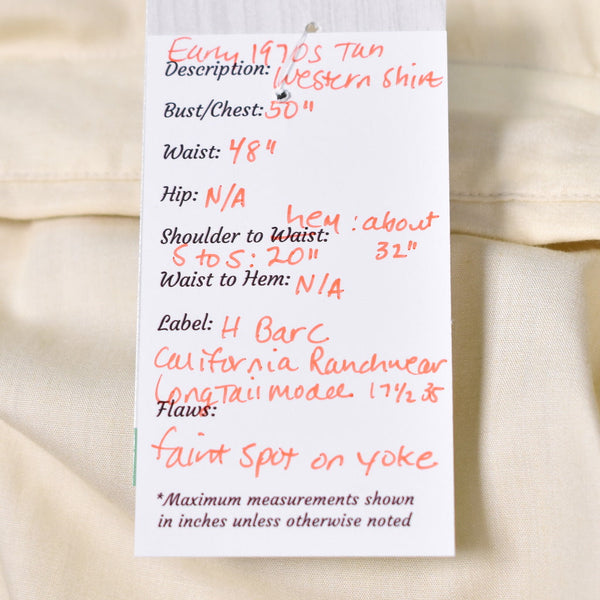 Early 1970s Tan
Description: Western Shirt
Bust/Chest: 50"
Waist: 48"
Hip: N/A
hem : about
Shoulder to Waist: 32"
S to S: 20"
Waist to Hem: N/A
Label: H Bar C
California Ranchwear
Long Tail Model 17 1/2 35
Flaws:
faint spot on yoke
*Maximum measurements shown
in inches unless otherwise noted